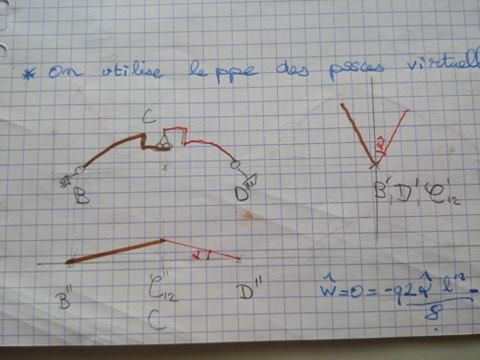 * On utilise le ppe des pssces virtuell
C
B
D
B', D', C'12
α
B"
C"12
D"
C
Ŵ = 0 = -q2α̂ l'²
8